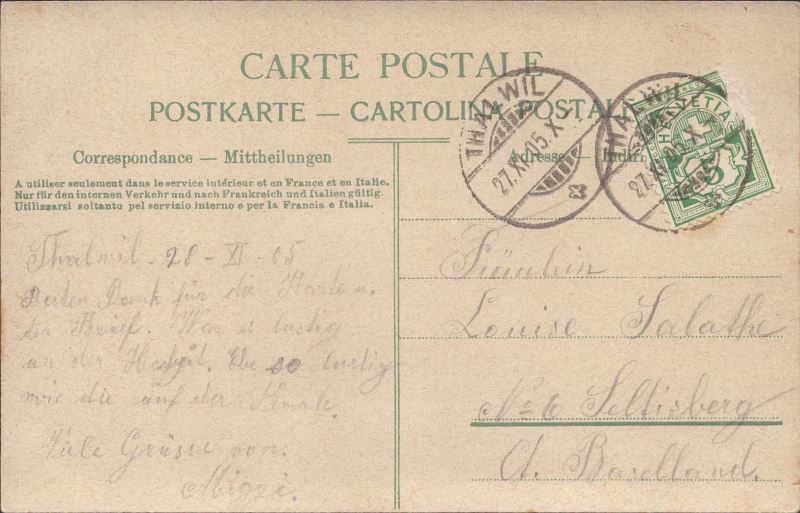 CARTE POSTALE
POSTKARTE — CARTOLINA POSTALE
Correspondance — Mittheilungen
A utiliser seulement dans le service intérieur et en France et en Italie.
Nur für den internen Verkehr und nach Frankreich und Italien gültig.
Utilizzarsi soltanto pel servizio interno e per la Francia e Italia.
Thalwil. 28 - XI - 05
Besten Dank für die Karte u.
den Brief. War es lustig
an der Hochzeit. Ebe so lustig
wie die auf der Karte.
Viele Grüsse von.
THALWIL
27.XI.05.X
THALWIL
27.XI.05.X
HELVETIA
5
Adresse — Indir
Fräulein
Louise Salathe
No 6 Seltisberg
Ct. Baselland.